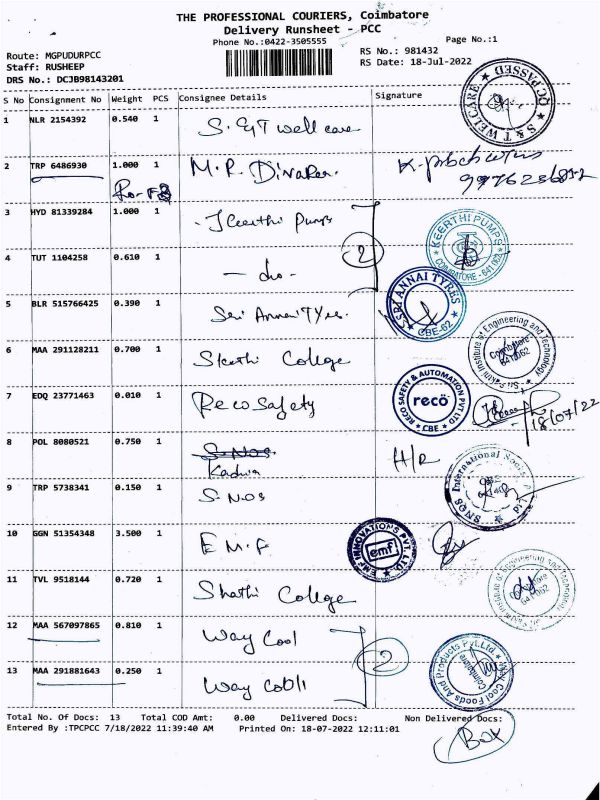 THE PROFESSIONAL COURIERS, Coimbatore
Delivery Runsheet - PCC
Phone No.:0422-3505555
Page No.:1
Route: MGPUDURPCC
Staff: RUSHEEP
DRS No.: DCJB98143201
RS No.: 981432
RS Date: 18-Jul-2022
S No Consignment No Weight PCS Consignee Details Signature
1 NLR 2154392 0.540 1 S. GT well care
S & T WELCARE QC PASSED
2 TRP 6486930 1.000 1 M.R. Dinakar.
9976236852
3 HYD 81339284 1.000 1 Keerthi Pumps
KEERTHI PUMPS COIMBATORE - 641 062
2
4 TUT 1104258 0.610 1 - do -
5 BLR 515766425 0.390 1 Sri Annai Tyre
SRI ANNAI TYRES CBE-62
6 MAA 291128211 0.700 1 Skethi College
Sri Sakthi Institute of Engineering and Technology Coimbatore 641062
7 EDQ 23771463 0.010 1 Reco Safety
RECO SAFETY & AUTOMATION PVT LTD reco CBE
18/07/22
8 POL 8080521 0.750 1 S.NOS
Kadhir H/R
9 TRP 5738341 0.150 1 S.NOS
SNQS International Socks P
10 GGN 51354348 3.500 1 E M F
EMF INNOVATIONS PVT. LTD. emf
11 TVL 9518144 0.720 1 Shathi College
Institute of Engineering and Technology 641062
12 MAA 567097865 0.810 1 Way Cool
2
13 MAA 291881643 0.250 1 Way Cool
Way Cool Foods And Products Pvt.Ltd. Coimbatore
Total No. Of Docs: 13 Total COD Amt: 0.00 Delivered Docs: Non Delivered Docs:
Entered By :TPCPCC 7/18/2022 11:39:40 AM Printed On: 18-07-2022 12:11:01
Box